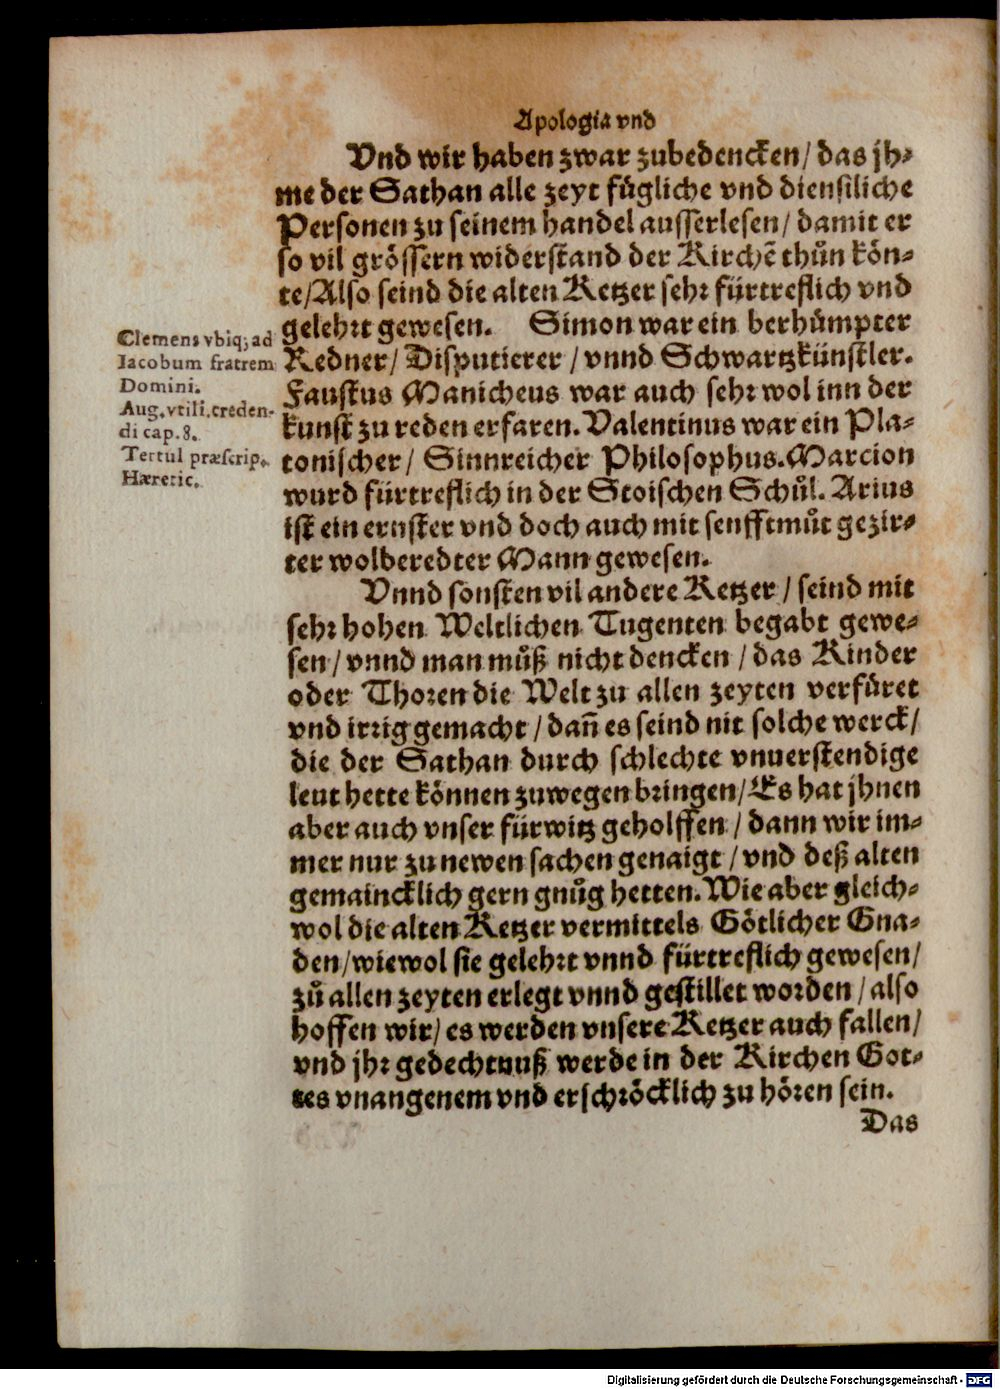 Apologia vnd
Vnd wir haben zwar zubedencken/ das jh-
me der Sathan alle zeyt fügliche vnd dienstliche
Personen zu seinem handel ausserlesen/ damit er
so vil grössern widerstand der Kirchẽ thůn kön-
te/Also seind die alten Ketzer sehr fürtreflich vnd
gelehrt gewesen. Simon war ein berhümpter
Redner/ Disputierer / vnnd Schwartzkünstler.
Faustus Manicheus war auch sehr wol inn der
kunst zu reden erfaren. Valentinus war ein Pla-
tonischer/ Sinnreicher Philosophus. Marcion
wurd fürtreflich in der Stoischen Schůl. Arius
ist ein ernster vnd doch auch mit senfftmůt gezir-
ter wolberedter Mann gewesen.
Clemens vbiq; ad
Iacobum fratrem
Domini.
Aug. vtili. creden-
di cap. 8.
Tertul præscrip.
Hæretic.
Vnnd sonsten vil andere Ketzer / seind mit
sehr hohen Weltlichen Tugenten begabt gewe-
sen/ vnnd man můß nicht dencken / das Kinder
oder Thoren die Welt zu allen zeyten verfüret
vnd irrig gemacht / dañ es seind nit solche werck/
die der Sathan durch schlechte vnuerstendige
leut hette können zuwegen bringen/ Es hat jhnen
aber auch vnser fürwitz geholffen / dann wir im-
mer nur zu newen sachen genaigt / vnd deß alten
gemaincklich gern gnůg hetten. Wie aber gleich-
wol die alten Ketzer vermittels Götlicher Gna-
den/ wiewol sie gelehrt vnnd fürtreflich gewesen/
zů allen zeyten erlegt vnnd gestillet worden / also
hoffen wir/ es werden vnsere Ketzer auch fallen/
vnd jhr gedechtnuß werde in der Kirchen Got-
tes vnangenem vnd erschröcklich zu hören sein.
Das
Digitalisierung gefördert durch die Deutsche Forschungsgemeinschaft - DFG